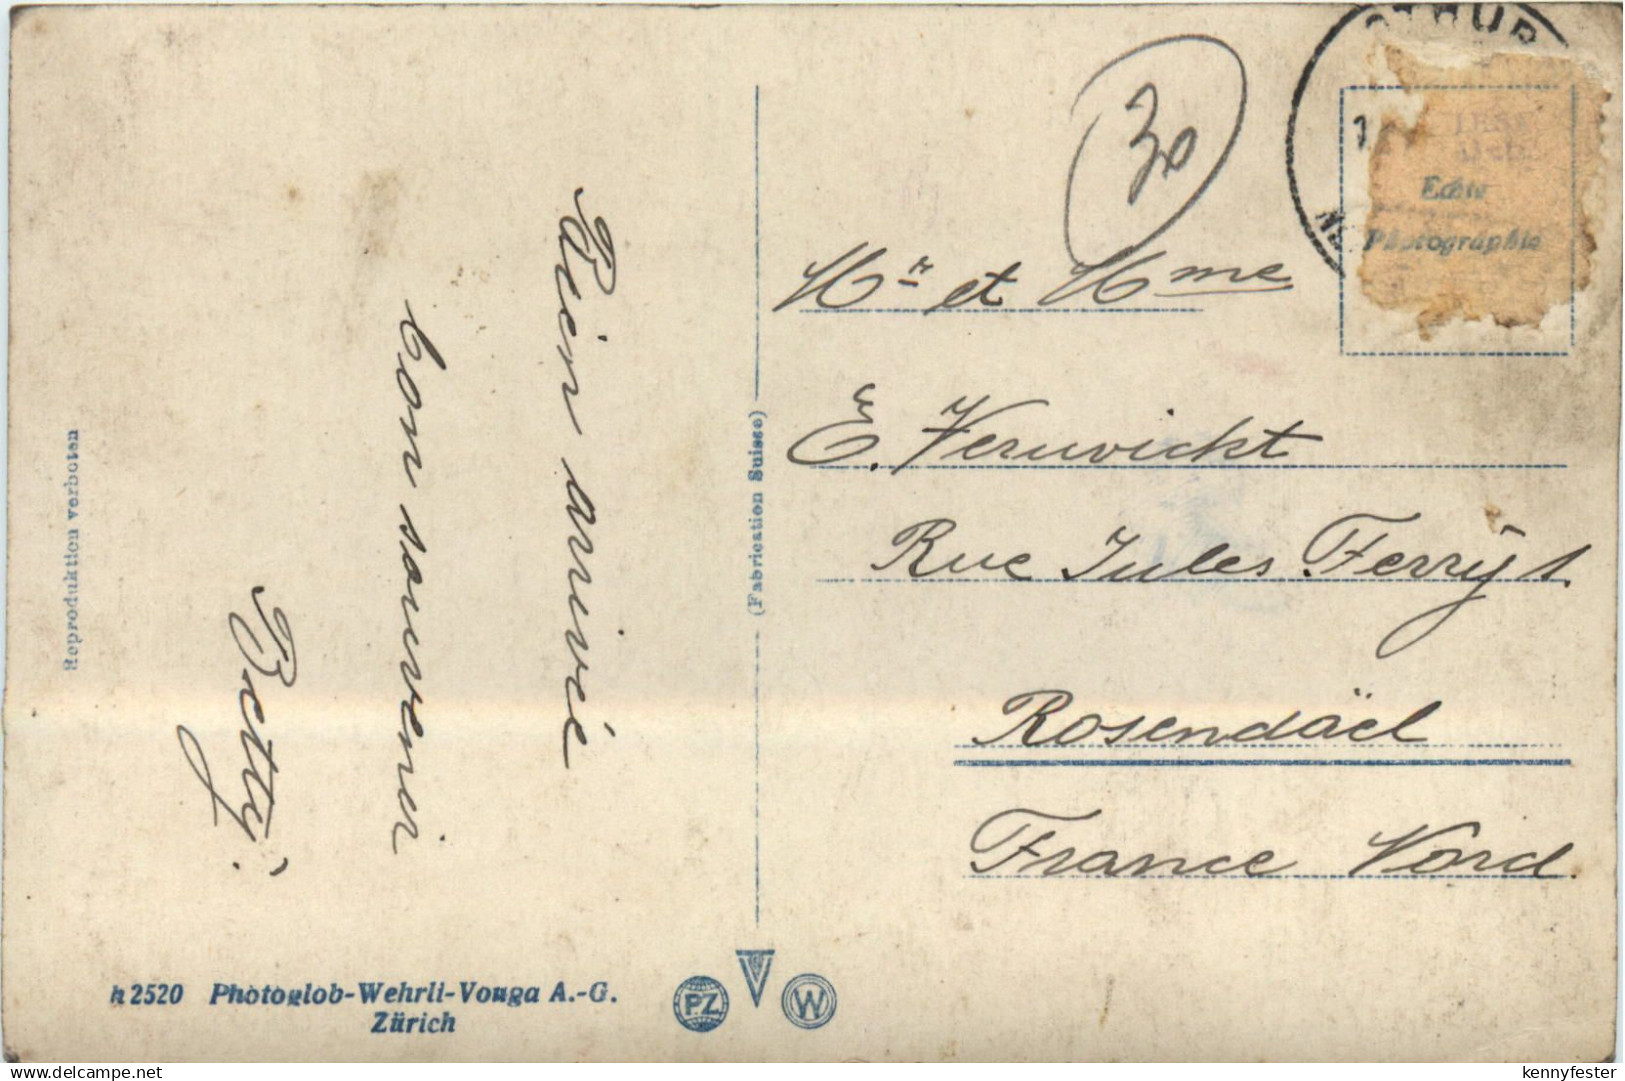 Bien arrivé
bon souvenir
Betty.
Reproduktion verboten
(Fabrication Suisse)
30
Mr et Mme
E. Verwickt
Rue Jules Ferry 1.
Rosendäel
France Nord.
Echte
Photographie
h 2520 Photoglob-Wehrli-Vouga A.-G.
Zürich
PZ
W
kennyfester